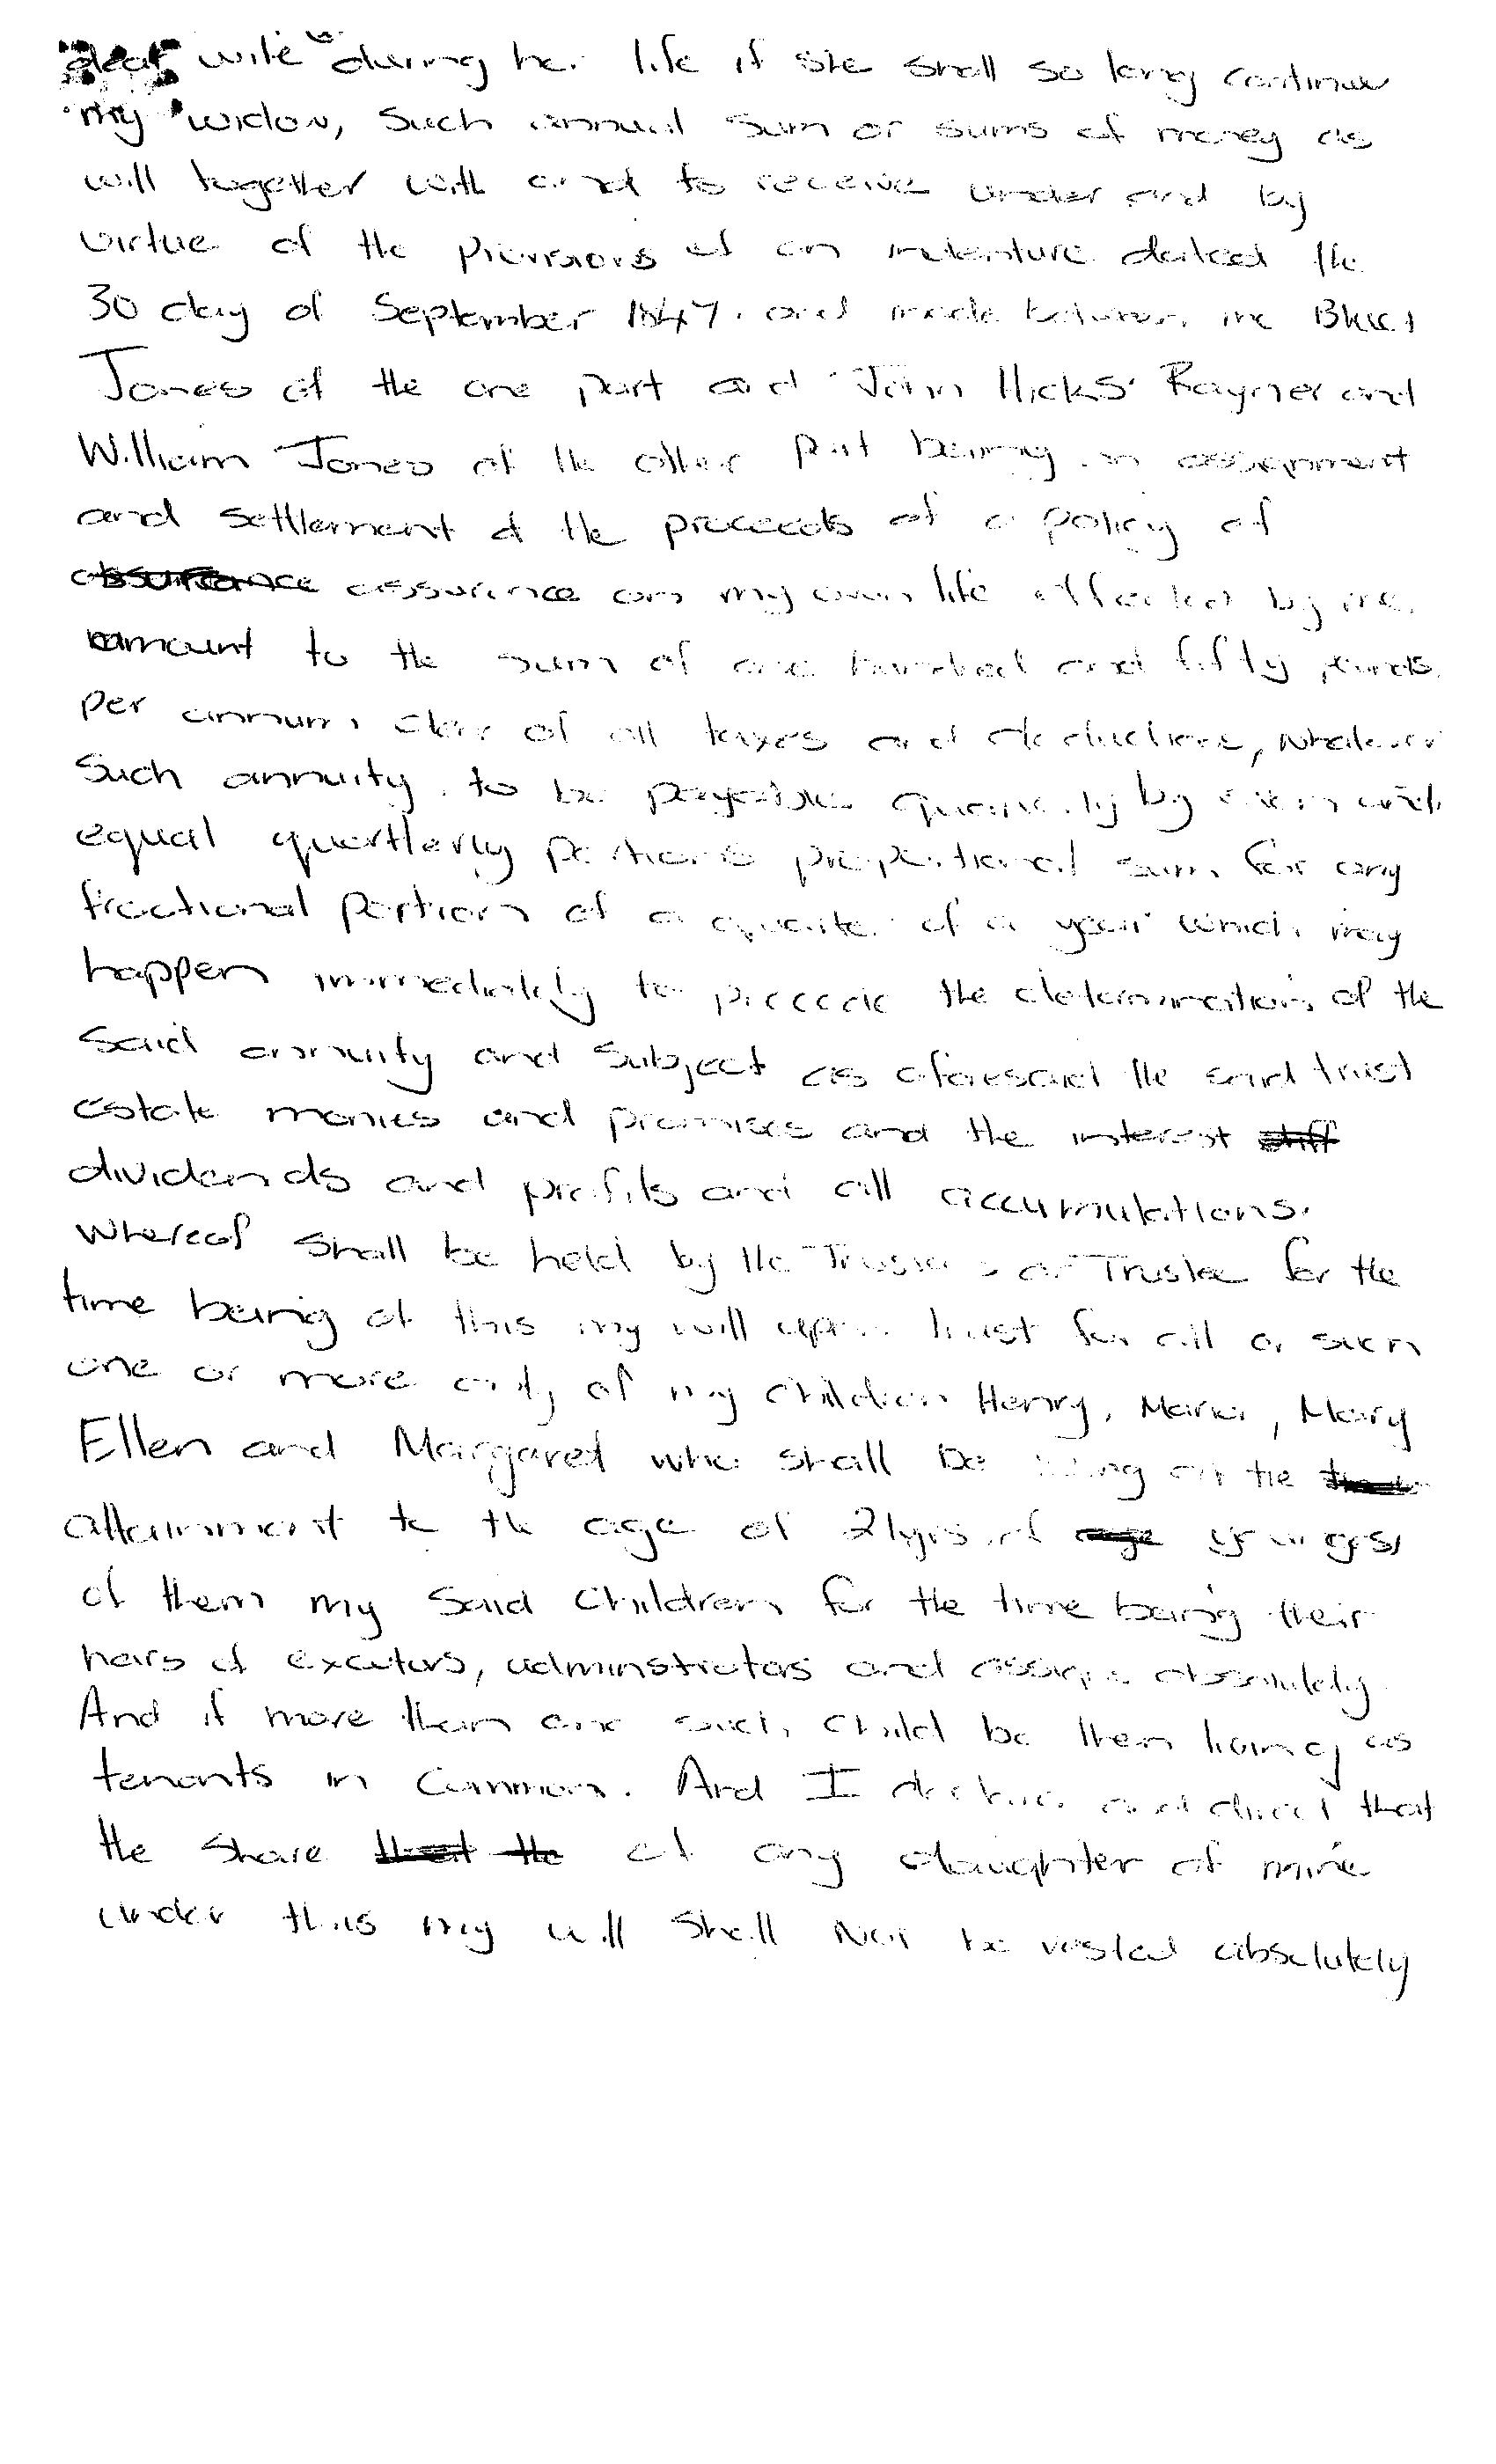 dear wife during her life if she shall so long continue
my widow, such annual sum or sums of money as
will together with and to receive under and by
virtue of the provisions of an indenture dated the
30 day of September 1847. and made between me
Jones of the one part and John Hicks Rayner and
William Jones of the other part being an assignment
and settlement of the proceeds of a policy of
assurance on my own life effected by me
amount to the sum of one hundred and fifty pounds
per annum clear of all taxes and deductions, whatever
Such annuity to be payable by even and
equal quartlerly portions proportional sum for any
fractional portion of a quarter of a year which may
happen immediately to precede the determination of the
said annuity and subject as aforesaid the said trust
estate monies and promises and the interest
dividends and profits and all accumulations.
whereof shall be held by the Trustees or Trustee for the
time being of this my will upon trust for all or such
one or more only of my children Henry, Maria, Mary
Ellen and Margaret who shall be living at the
attainment to the age of 21yrs of youngest
of them my said children for the time being their
heirs of excutors, adminstrators and assigns absolutely.
And if more than one such child be then living as
tenants in common. And I declare and direct that
the share of any daughter of mine
under this my will shall not be vested absolutely